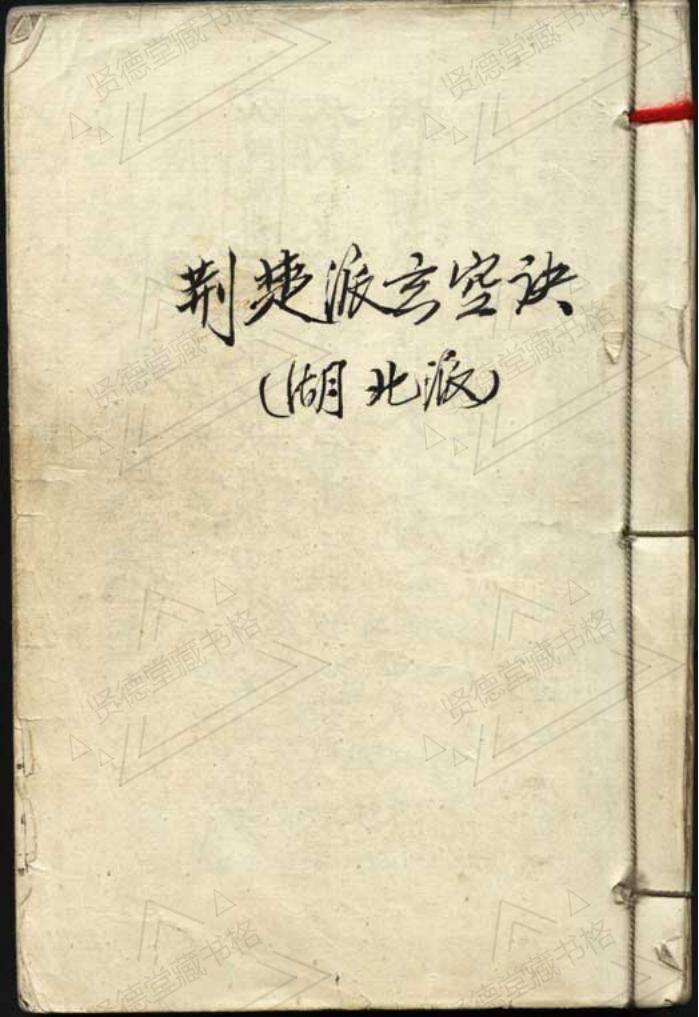 荆楚派玄空诀
(湖北派)
贤德堂藏书格
贤德堂藏书格
贤德堂藏书格
贤德堂藏书格
贤德堂藏书格
贤德堂藏书格
贤德堂藏书格
贤德堂藏书格